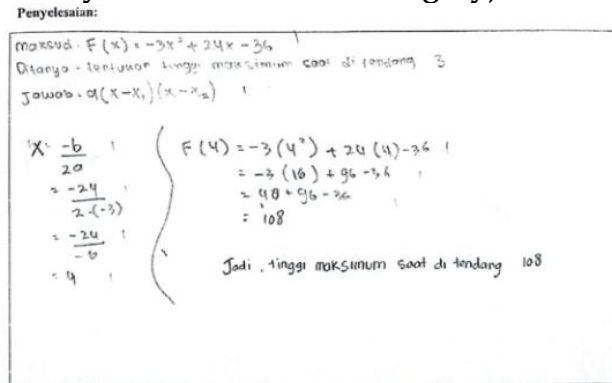 Penyelesaian:
maksud. F(x) = -3x² + 24x - 36
Ditanya - tentukan tinggi maksimum saat di tendang 3
Jawab. a(x-x₁)(x-x₂)
x = -b
2a
= -24
2·(-3)
= -24
-6
= 4
F(4) = -3(4²) + 24(4) - 36
= -3(16) + 96 - 36
= 48 + 96 - 36
= 108
Jadi, tinggi maksimum saat di tendang 108